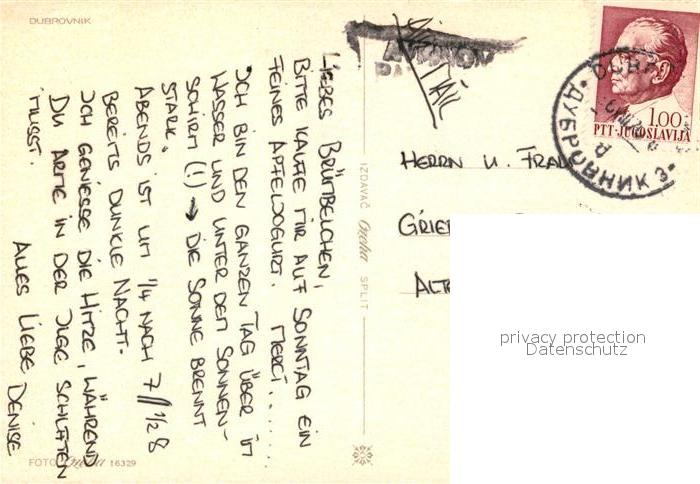 DUBROVNIK
LIEBES BRÜMBELCHEN,
BITTE KAUFE MIR AUF SONNTAG EIN
FEINES APFELJOGURT. MERCI......
ICH BIN DEN GANZEN TAG ÜBER IM
WASSER UND UNTER DEM SONNEN-
SCHIRM (!) → DIE SONNE BRENNT
STARK.
ABENDS IST UM 1/4 NACH 7 // 1/2 8
BEREITS DUNKLE NACHT.
ICH GENIESSE DIE HITZE, WÄHREND
DU ARME IN DER JUGI SCHLAFEN
MUSST.
ALLES LIEBE DENISE
FOTO 16329
IZDAVAČ SPLIT
AVION
PAR
HERRN U. FRAU
GRIE
ALT
1.00
PTT-JUGOSLAVIJA
ДУБРОВНИК 3
privacy protection
Datenschutz